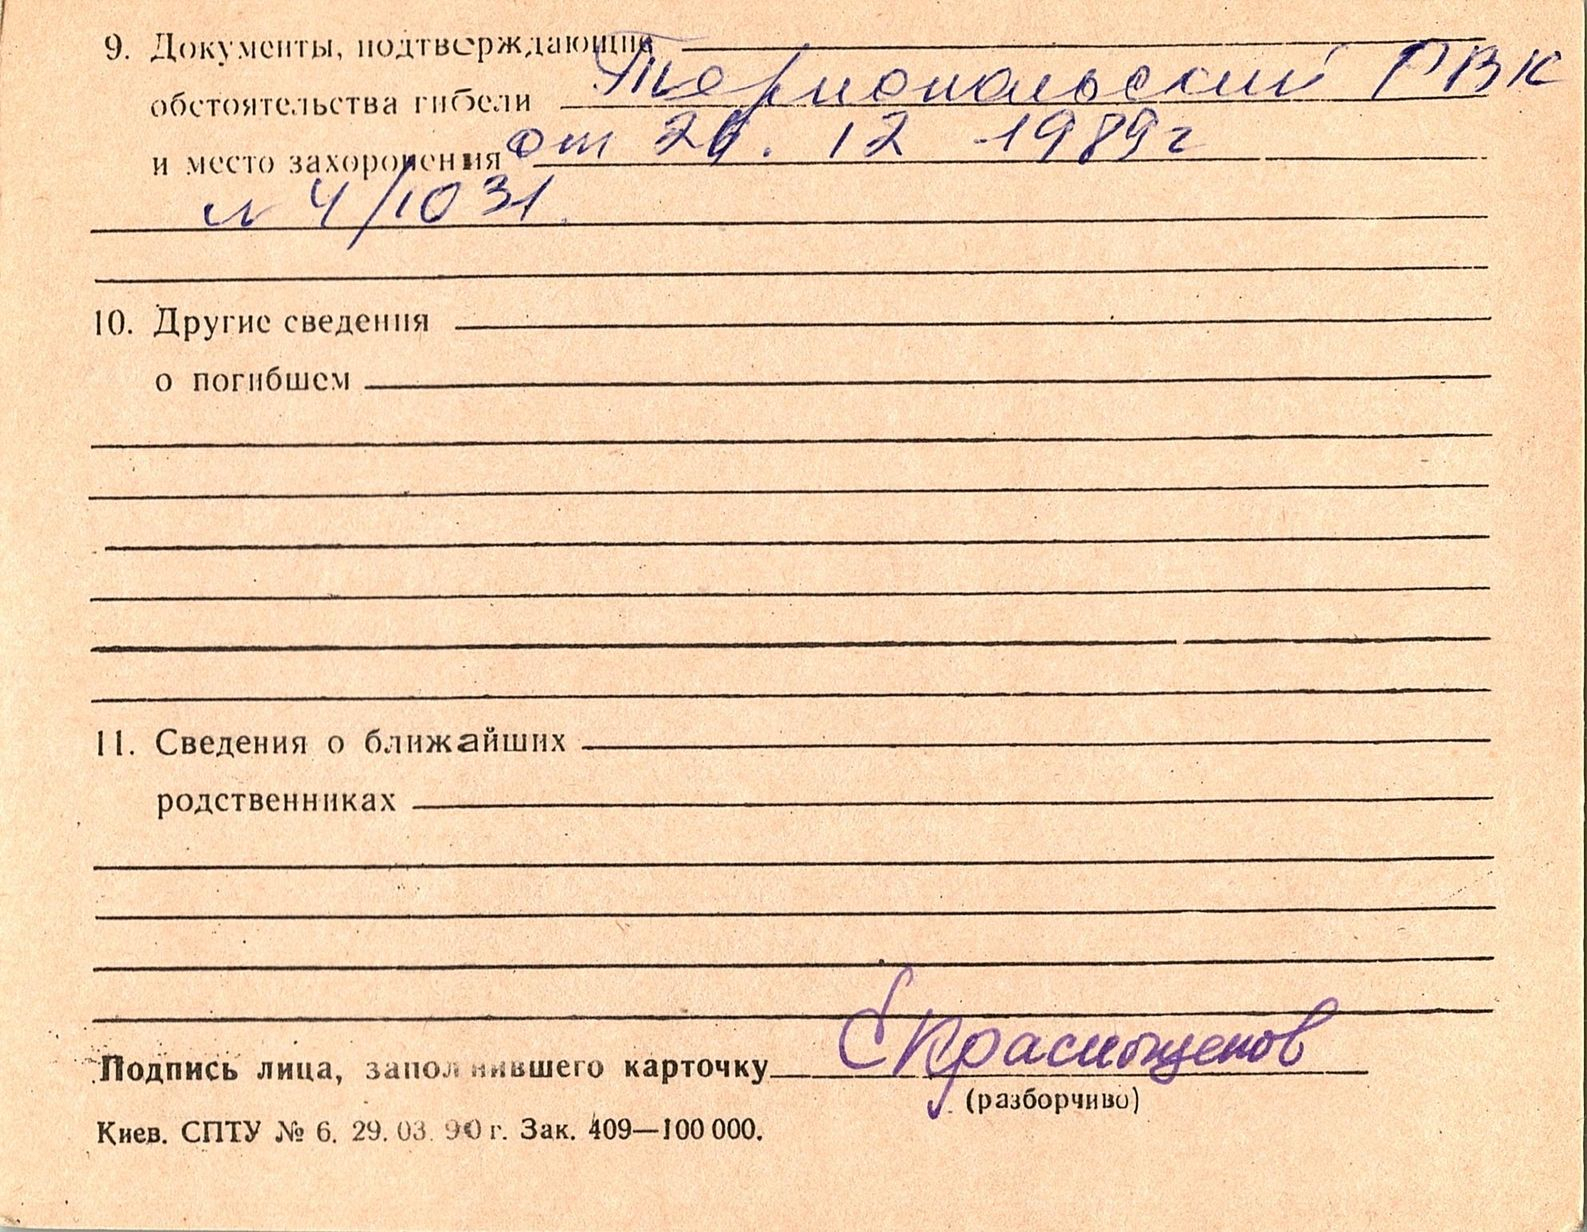 9. Документы, подтверждающие
обстоятельства гибели Тернопольский РВК
и место захоронения от 29. 12 1989г
№ 4/1031
10. Другие сведения
о погибшем
11. Сведения о ближайших
родственниках
Подпись лица, заполнившего карточку С Краснощеков
(разборчиво)
Киев. СПТУ № 6. 29. 03. 90 г. Зак. 409—100 000.